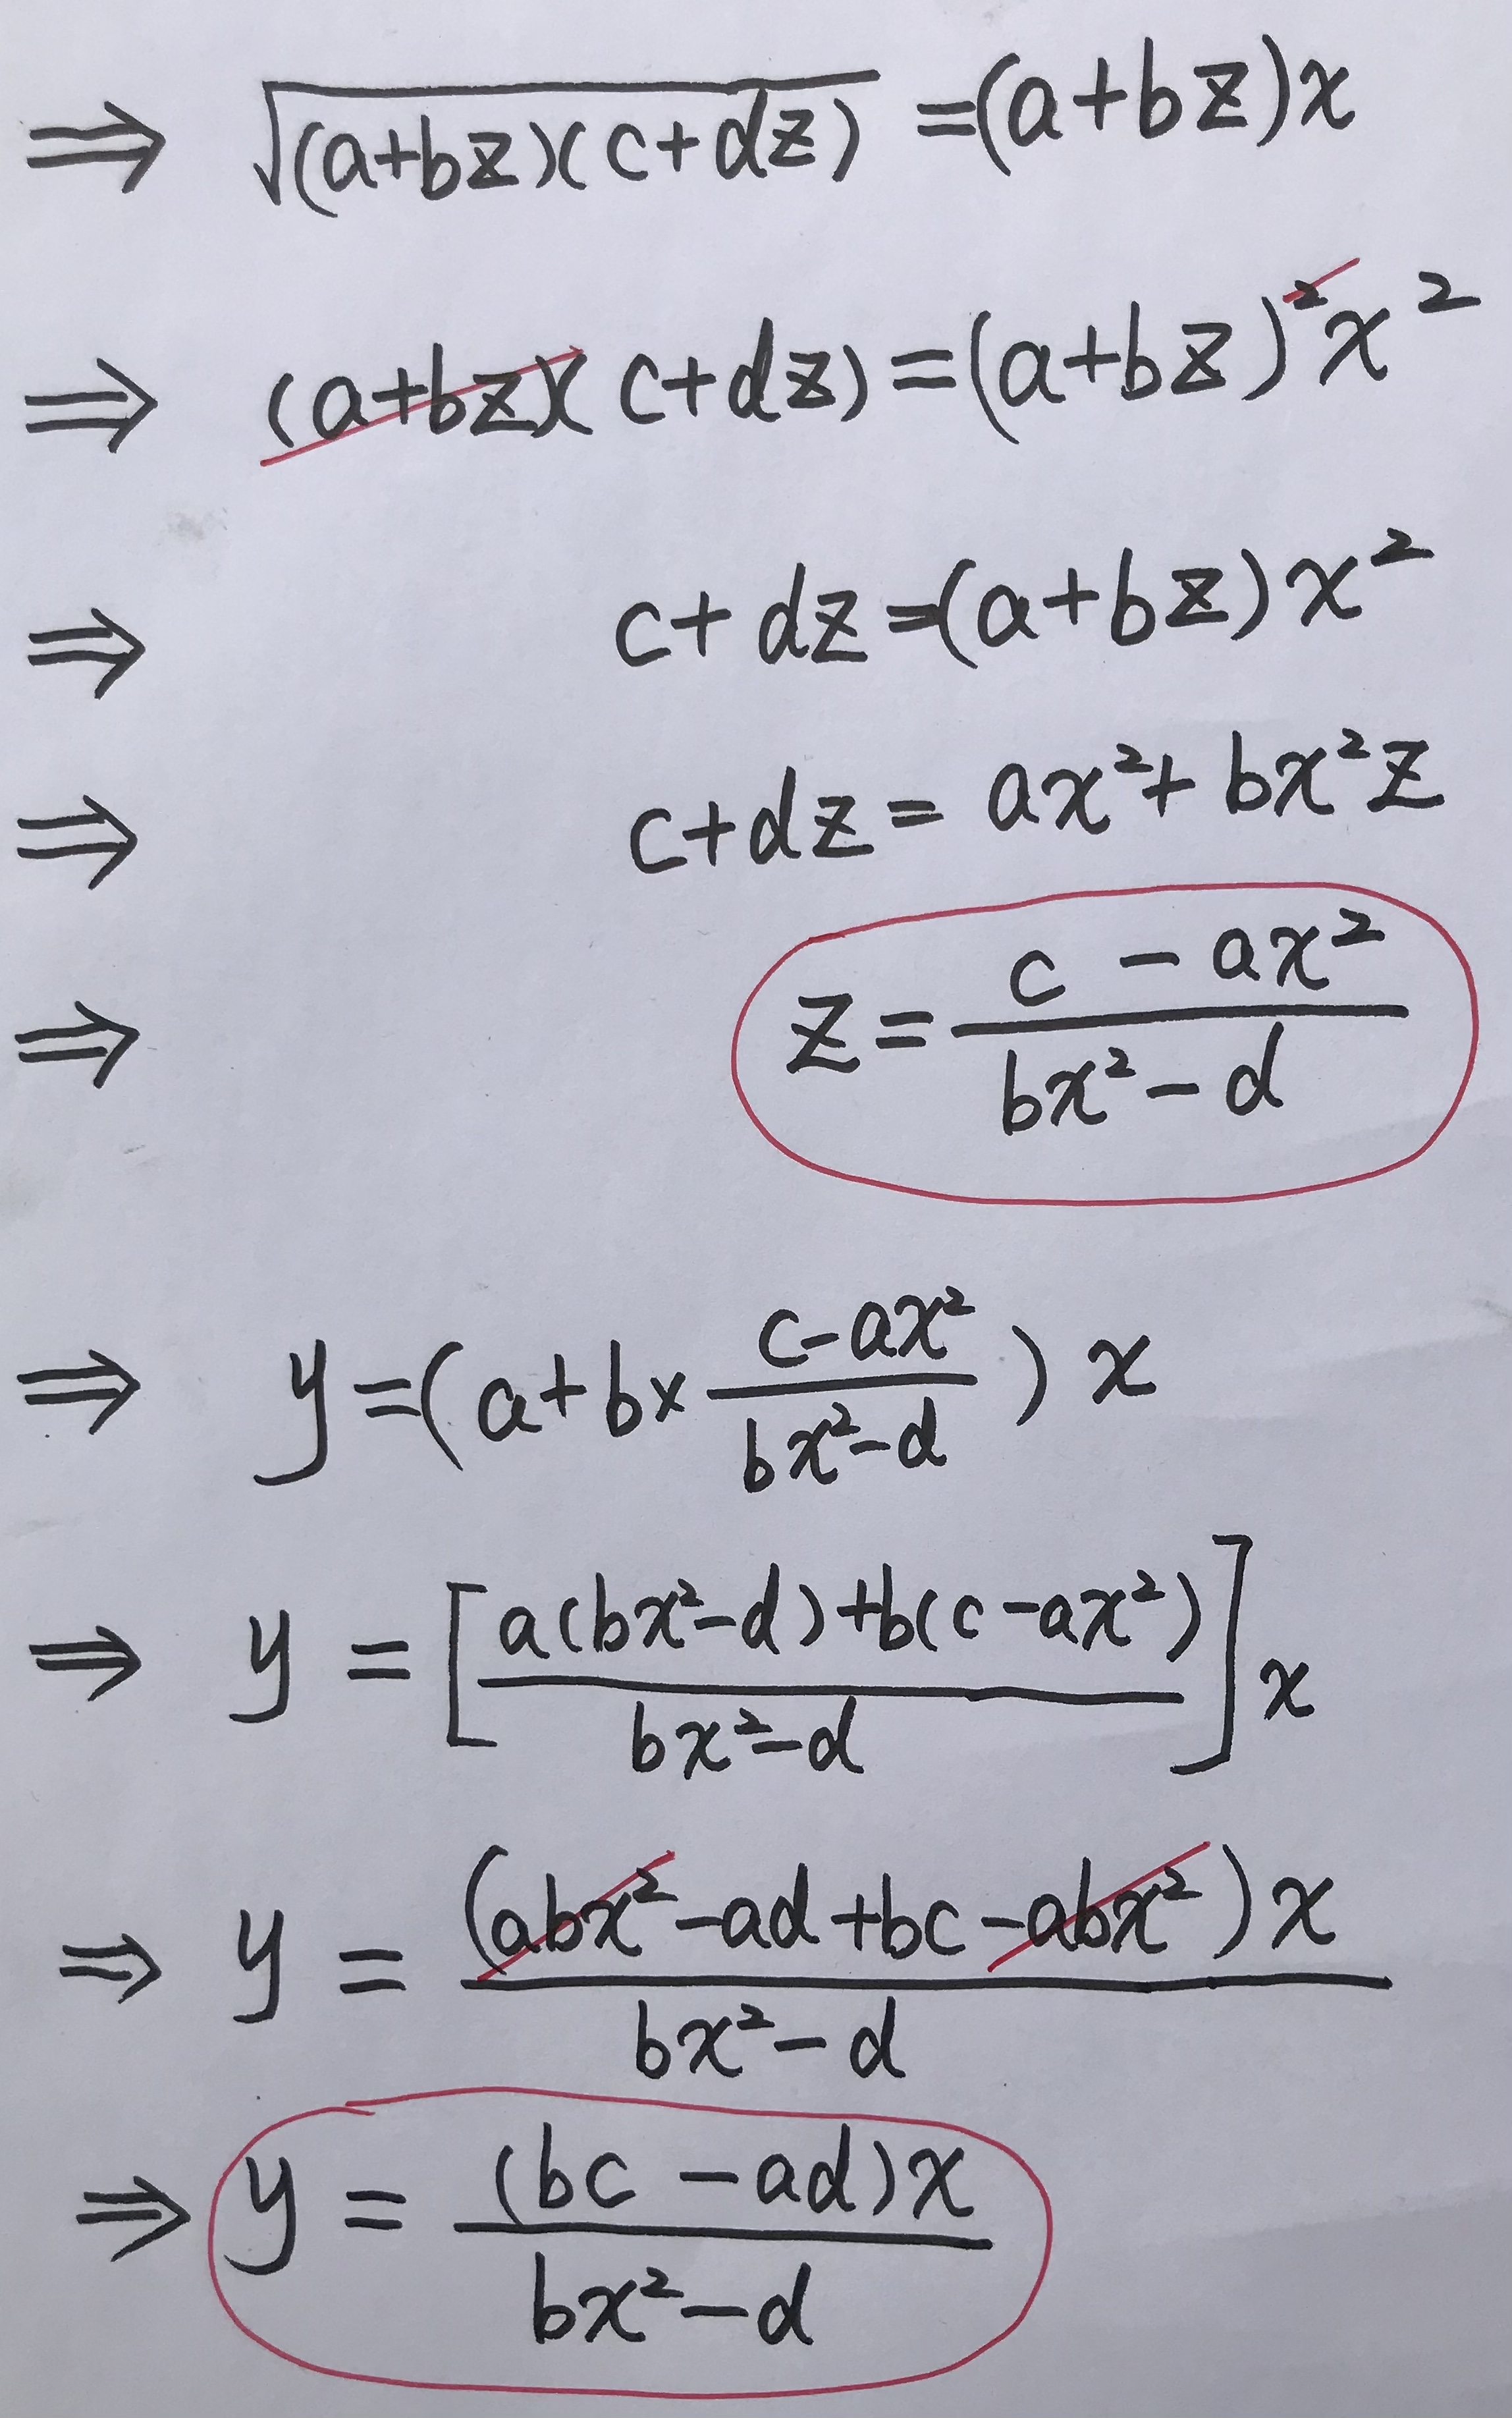 ⇒ √((a+bz)(c+dz)) =(a+bz)x
⇒ (a+bz)(c+dz)=(a+bz)²x²
⇒ c+dz=(a+bz)x²
⇒ c+dz= ax²+bx²z
⇒ z= (c-ax²)/(bx²-d)
⇒ y=(a+b× (c-ax²)/(bx²-d))x
⇒ y = [(a(bx²-d)+b(c-ax²))/(bx²-d)]x
⇒ y = ((abx²-ad+bc-abx²)x)/(bx²-d)
⇒ y = ((bc-ad)x)/(bx²-d)